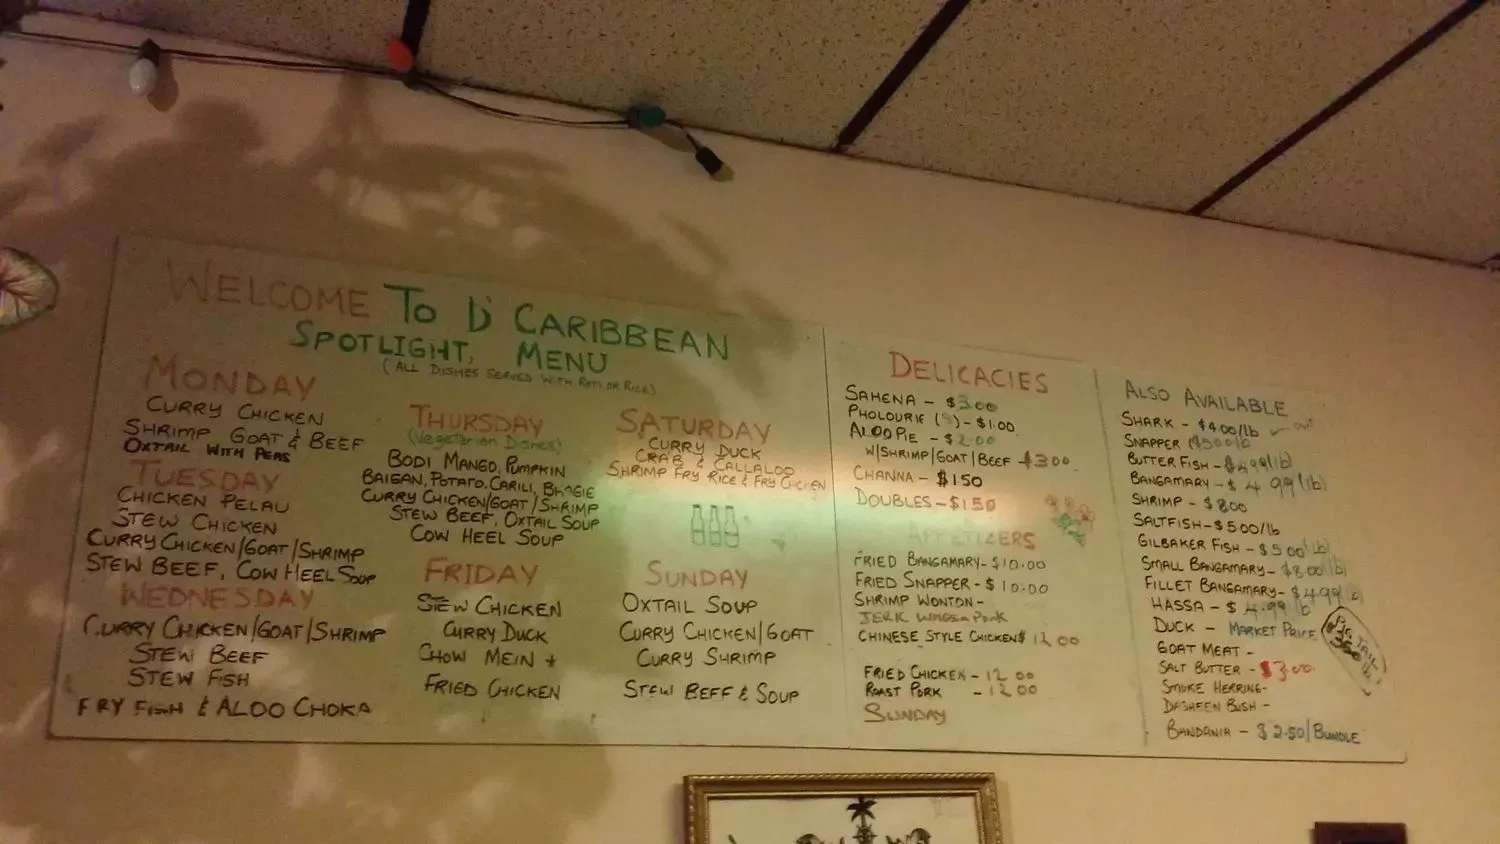 WELCOME TO D' CARIBBEAN
SPOTLIGHT, MENU
(ALL DISHES SERVED WITH ROTI OR RICE)
MONDAY
CURRY CHICKEN
SHRIMP GOAT & BEEF
OXTAIL WITH PEAS
TUESDAY
CHICKEN PELAU
STEW CHICKEN
CURRY CHICKEN/GOAT/SHRIMP
STEW BEEF, COW HEEL SOUP
WEDNESDAY
CURRY CHICKEN/GOAT/SHRIMP
STEW BEEF
STEW FISH
FRY FISH & ALOO CHOKA
THURSDAY
(Vegetarian Dishes)
BODI MANGO, PUMPKIN
BAIGAN, POTATO, CARILI, BHAGIE
CURRY CHICKEN/GOAT/SHRIMP
STEW BEEF, OXTAIL SOUP
COW HEEL SOUP
FRIDAY
STEW CHICKEN
CURRY DUCK
CHOW MEIN +
FRIED CHICKEN
SATURDAY
CURRY DUCK
CRAB & CALLALOO
SHRIMP FRY RICE & FRY CHICKEN
SUNDAY
OXTAIL SOUP
CURRY CHICKEN/GOAT
CURRY SHRIMP
STEW BEEF & SOUP
DELICACIES
SAHENA - $3.00
PHOLOURIE (5) - $1.00
ALOO PIE - $2.00
W/SHRIMP/GOAT/BEEF $3.00
CHANNA - $1.50
DOUBLES - $1.50
APPETIZERS
FRIED BANGAMARY - $10.00
FRIED SNAPPER - $10.00
SHRIMP WONTON -
JERK WINGS Pork
CHINESE STYLE CHICKEN $12.00
FRIED CHICKEN - 12.00
ROAST PORK - 12.00
SUNDAY
ALSO AVAILABLE
SHARK - $4.00/lb
SNAPPER $5.00 lb
BUTTER FISH - $4.99 (lb)
BANGAMARY - $4.99 (lb)
SHRIMP - $8.00
SALTFISH - $5.00/lb
GILBAKER FISH - $5.00 (lb)
SMALL BANGAMARY - $8.00 (lb)
FILLET BANGAMARY - $4.99 (lb)
HASSA - $4.99 lb
DUCK - MARKET PRICE
GOAT MEAT -
SALT BUTTER - $3.00
SMOKE HERRING -
DASHEEN BUSH -
BANDANIA - $2.50/BUNDLE
PIG TAIL
$3.60 lb